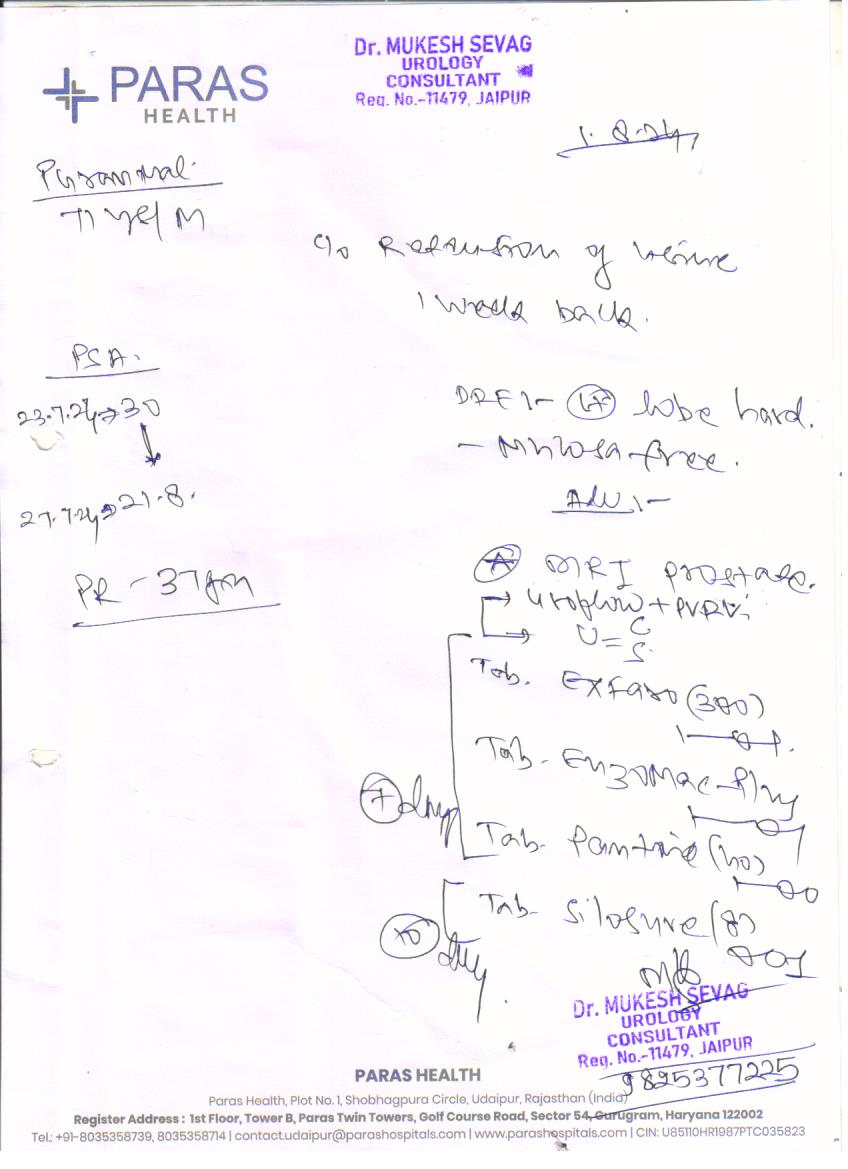 PARAS
HEALTH
Dr. MUKESH SEVAG
UROLOGY
CONSULTANT
Reg. No.-11479, JAIPUR
1.8.24
71 yr/M
c/o Retention of urine
1 week back.
PSA.
23.7.24→30
27.7.24→21.8.
PR - 37gm
DRE:- LT lobe hard.
- Mucosa free.
Adv:-
MRI prostate.
→ Uroflow + PVRV.
→ U= C
S.
Tab.
Tab. Enzomac-Plus
Tab. (40)
7 days
Tab. Silosure (8)
days
Dr. MUKESH SEVAG
UROLOGY
CONSULTANT
Reg. No.-11479, JAIPUR
9825377225
PARAS HEALTH
Paras Health, Plot No. 1, Shobhagpura Circle, Udaipur, Rajasthan (India)
Register Address : 1st Floor, Tower B, Paras Twin Towers, Golf Course Road, Sector 54, Gurugram, Haryana 122002
Tel.: +91-8035358739, 8035358714 | contact.udaipur@parashospitals.com | www.parashospitals.com | CIN: U85110HR1987PTC035823